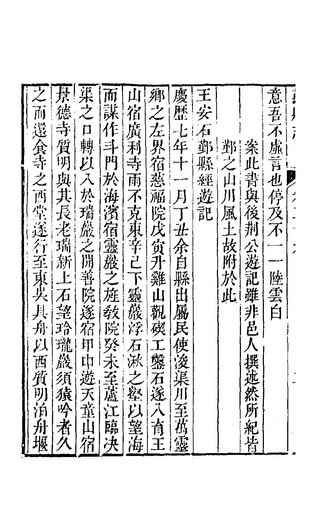 意吾不虛言也停及不一一陸雲白
案此書與後荆公遊記雖非邑人撰述然所紀皆
鄞之山川風土故附於此
王安石鄞縣經遊記
慶歷七年十一月丁丑余自縣出屬民使浚渠川至萬靈
鄉之左界宿慈福院戊寅升雞山觀碶工鑿石遂入育王
山宿廣利寺雨不克東辛巳下靈巖浮石湫之壑以望海
而謀作斗門於海濱宿靈巖之旌教院癸未至蘆江臨決
渠之口轉以入於瑞巖之開善院遂宿甲申遊天童山宿
景德寺質明與其長老瑞新上石望玲瓏巖須猿吟者久
之而還食寺之西堂遂行至東吳具舟以西質明泊舟堰